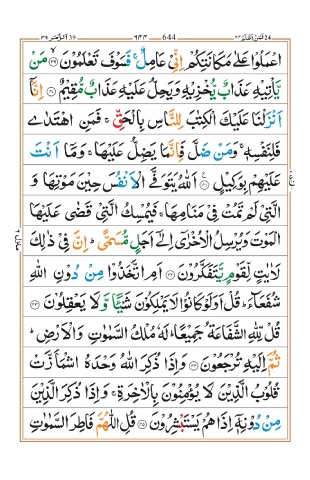 الزمر ٣٩ ٦٤٤ 644 فمن اظلم ٢٤
اعْمَلُوْا عَلٰى مَكَانَتِكُمْ اِنِّیْ عَامِلٌ ۚ فَسَوْفَ تَعْلَمُوْنَ ۙ﴿۳۹﴾ مَنْ
یَّاْتِیْهِ عَذَابٌ یُّخْزِیْهِ وَیَحِلُّ عَلَیْهِ عَذَابٌ مُّقِیْمٌ ﴿۴۰﴾ اِنَّاۤ
اَنْزَلْنَا عَلَیْكَ الْكِتٰبَ لِلنَّاسِ بِالْحَقِّ ۚ فَمَنِ اهْتَدٰى
فَلِنَفْسِهٖ ۚ وَمَنْ ضَلَّ فَاِنَّمَا یَضِلُّ عَلَیْهَا ۚ وَمَاۤ اَنْتَ
عَلَیْهِمْ بِوَكِیْلٍ ﴿۴۱﴾ اَللّٰهُ یَتَوَفَّى الْاَنْفُسَ حِیْنَ مَوْتِهَا وَ
الَّتِیْ لَمْ تَمُتْ فِیْ مَنَامِهَا ۚ فَیُمْسِكُ الَّتِیْ قَضٰى عَلَیْهَا
الْمَوْتَ وَیُرْسِلُ الْاُخْرٰۤى اِلٰۤى اَجَلٍ مُّسَمًّى ؕ اِنَّ فِیْ ذٰلِكَ
لَاٰیٰتٍ لِّقَوْمٍ یَّتَفَكَّرُوْنَ ﴿۴۲﴾ اَمِ اتَّخَذُوْا مِنْ دُوْنِ اللّٰهِ
شُفَعَآءَ ؕ قُلْ اَوَلَوْ كَانُوْا لَا یَمْلِكُوْنَ شَیْـًٔا وَّلَا یَعْقِلُوْنَ ﴿۴۳﴾
قُلْ لِّلّٰهِ الشَّفَاعَةُ جَمِیْعًا ؕ لَهٗ مُلْكُ السَّمٰوٰتِ وَالْاَرْضِ ؕ
ثُمَّ اِلَیْهِ تُرْجَعُوْنَ ﴿۴۴﴾ وَاِذَا ذُكِرَ اللّٰهُ وَحْدَهُ اشْمَاَزَّتْ
قُلُوْبُ الَّذِیْنَ لَا یُؤْمِنُوْنَ بِالْاٰخِرَةِ ۚ وَاِذَا ذُكِرَ الَّذِیْنَ
مِنْ دُوْنِهٖۤ اِذَا هُمْ یَسْتَبْشِرُوْنَ ﴿۴۵﴾ قُلِ اللّٰهُمَّ فَاطِرَ السَّمٰوٰتِ